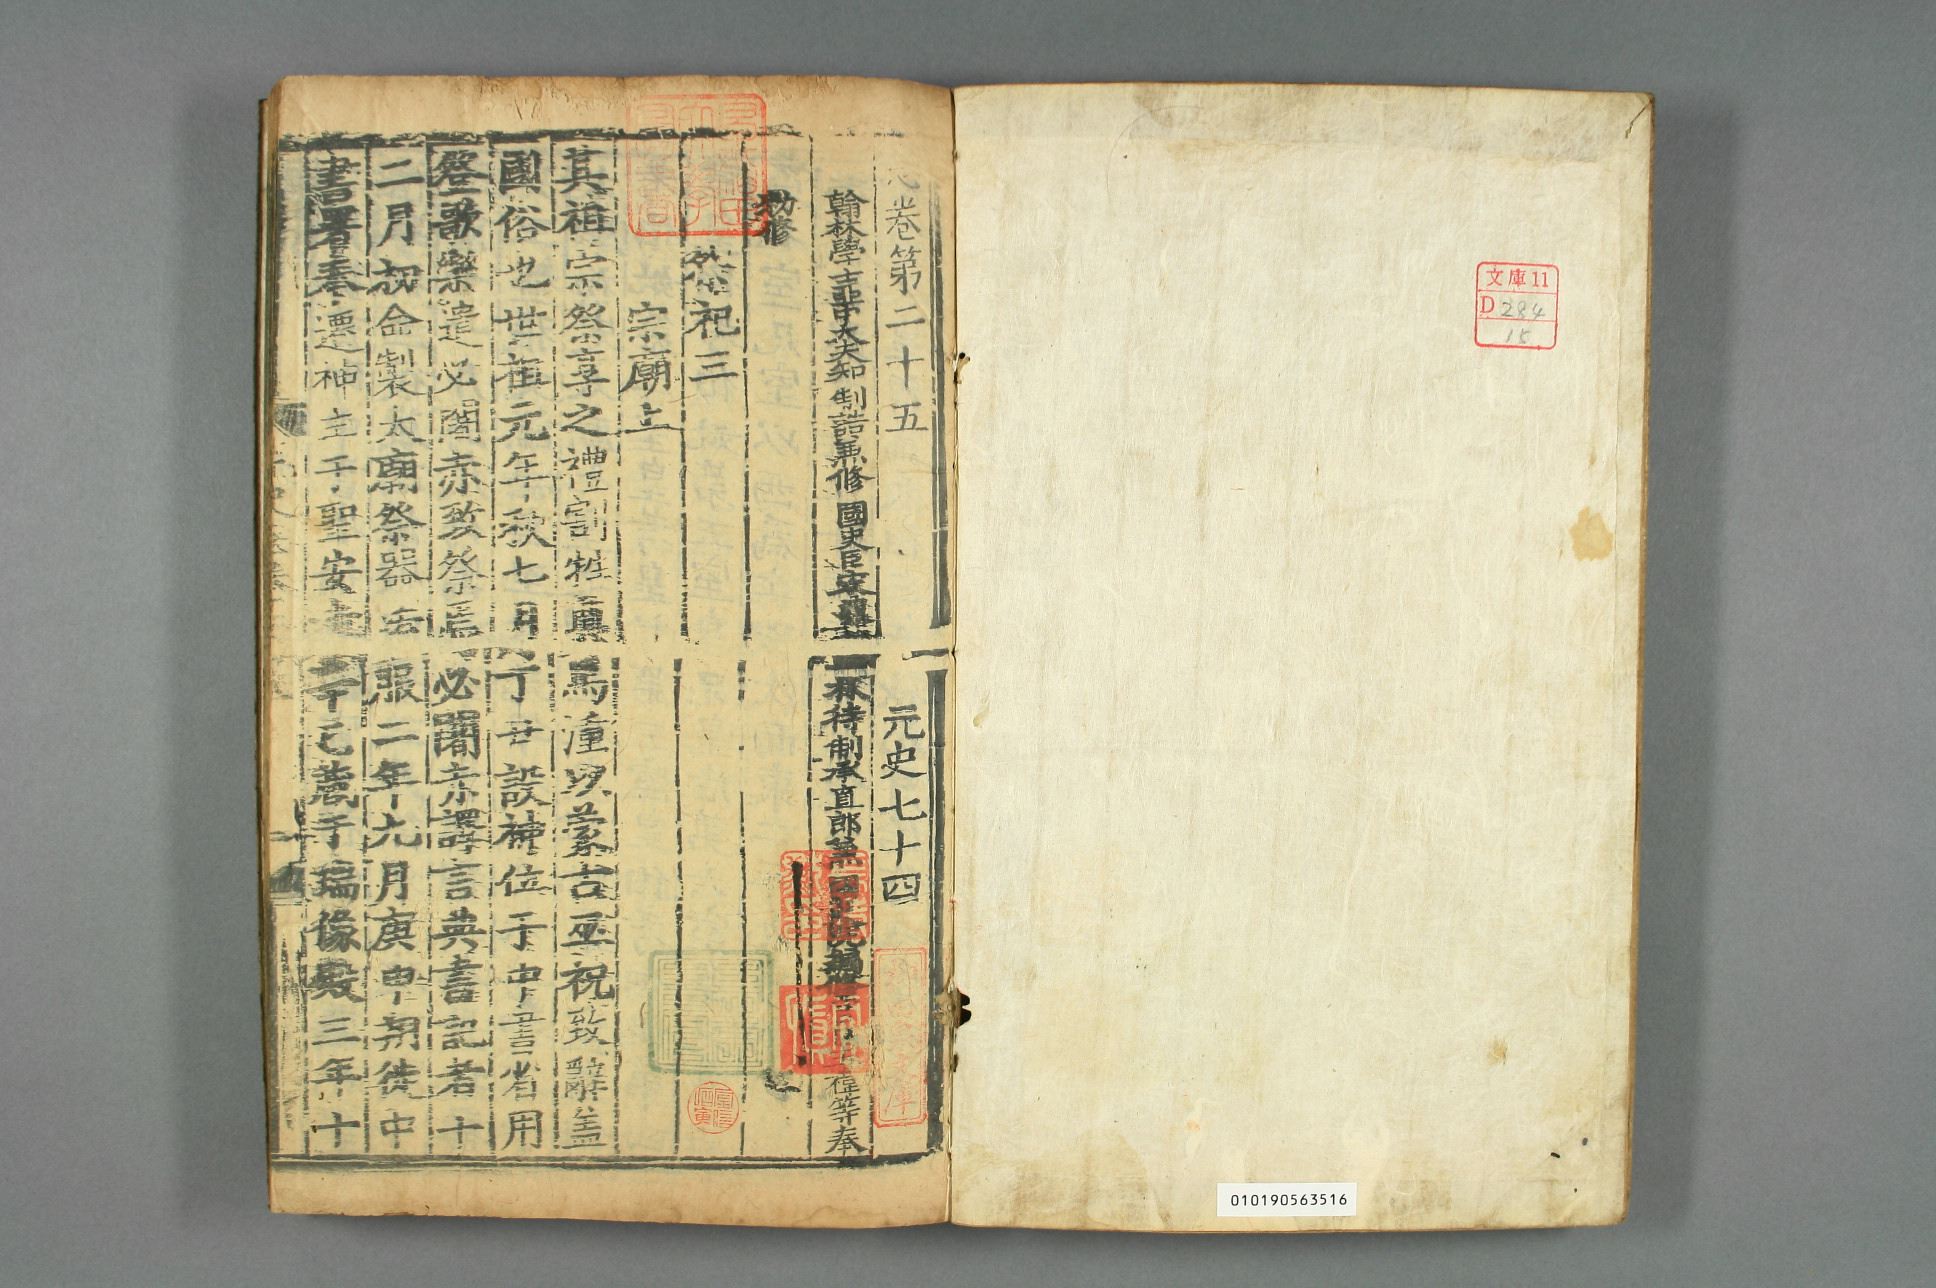 文庫11
D 284
15
010190563516
志卷第二十五 元史七十四
翰林學士亞中大夫知制誥兼修國史臣宋濂 翰林待制承直郎兼國史院編修官臣王禕等奉
勑修
祭祀三
宗廟上
其祖宗祭享之禮割牲奠馬湩以蒙古巫祝致辭蓋
國俗也世祖元年秋七月丁丑設神位于中書省用
登歌樂遣必闍赤致祭焉必闍赤譯言典書記者十
二月初命製太廟祭器法服二年九月庚申朔徙中
書署奉遷神主于聖安寺辛巳藏于瑞像殿三年十